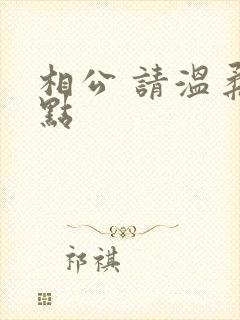 相公 請溫柔
點
祁祺